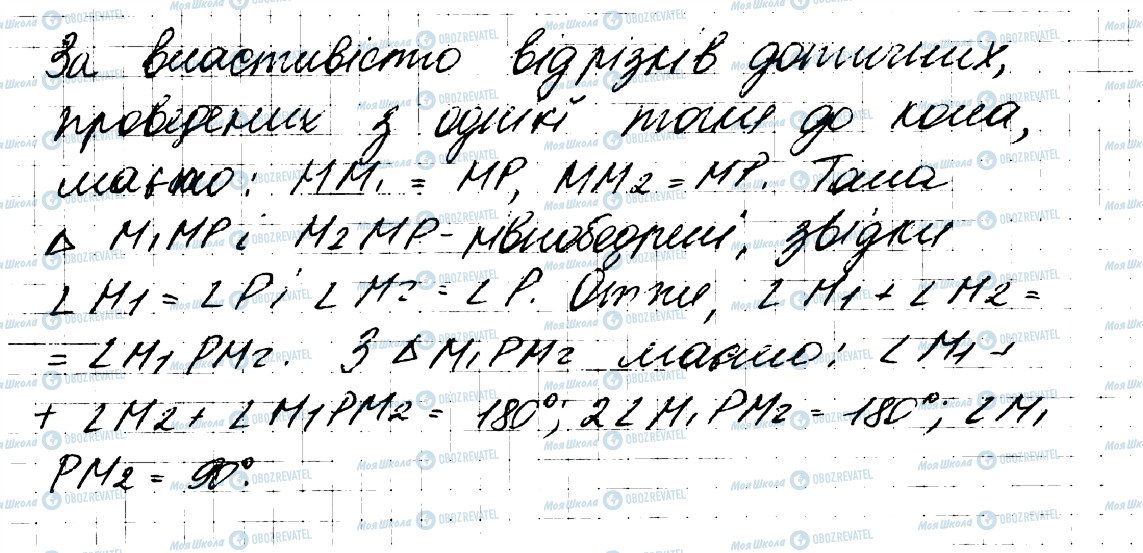 За властивістю відрізків дотичних,
проведених з однієї точки до кола,
маємо: MM₁ = MP, MM₂ = MP. Тоді
Δ M₁MP і M₂MP - рівнобедрені, звідки
∠M₁ = ∠P і ∠M₂ = ∠P. Отже, ∠M₁ + ∠M₂ =
= ∠M₁PM₂. З Δ M₁PM₂ маємо: ∠M₁ +
+ ∠M₂ + ∠M₁PM₂ = 180°; 2∠M₁PM₂ = 180°; ∠M₁
PM₂ = 90°.